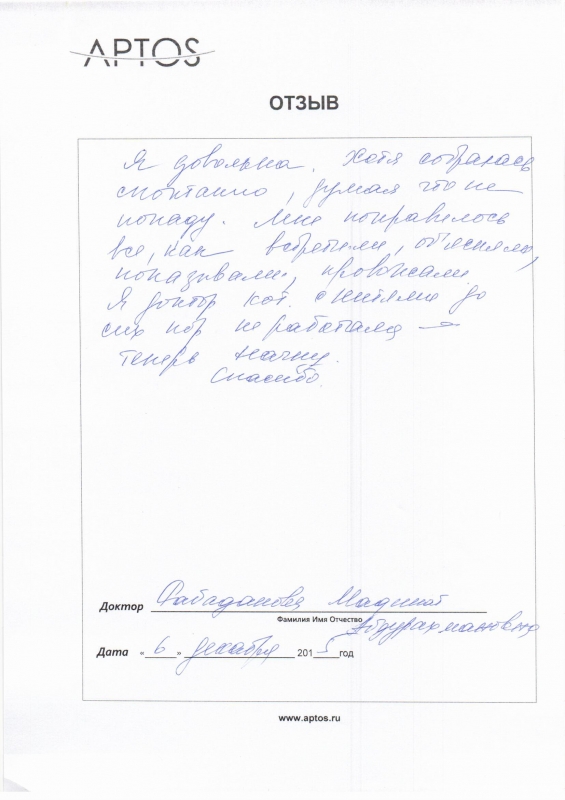 APTOS
ОТЗЫВ
Я довольна. Хотя собралась
спонтанно, думая что не
попаду. Мне понравилось
все, как встретили, объясняли,
показывали, провожали.
Я доктор кот. с нитями до
сих пор не работала —
теперь начну.
Спасибо.
Доктор Рабаданова Мадинат
Фамилия Имя Отчество
Абдурахмановна
Дата «6» декабря 2015 год
www.aptos.ru